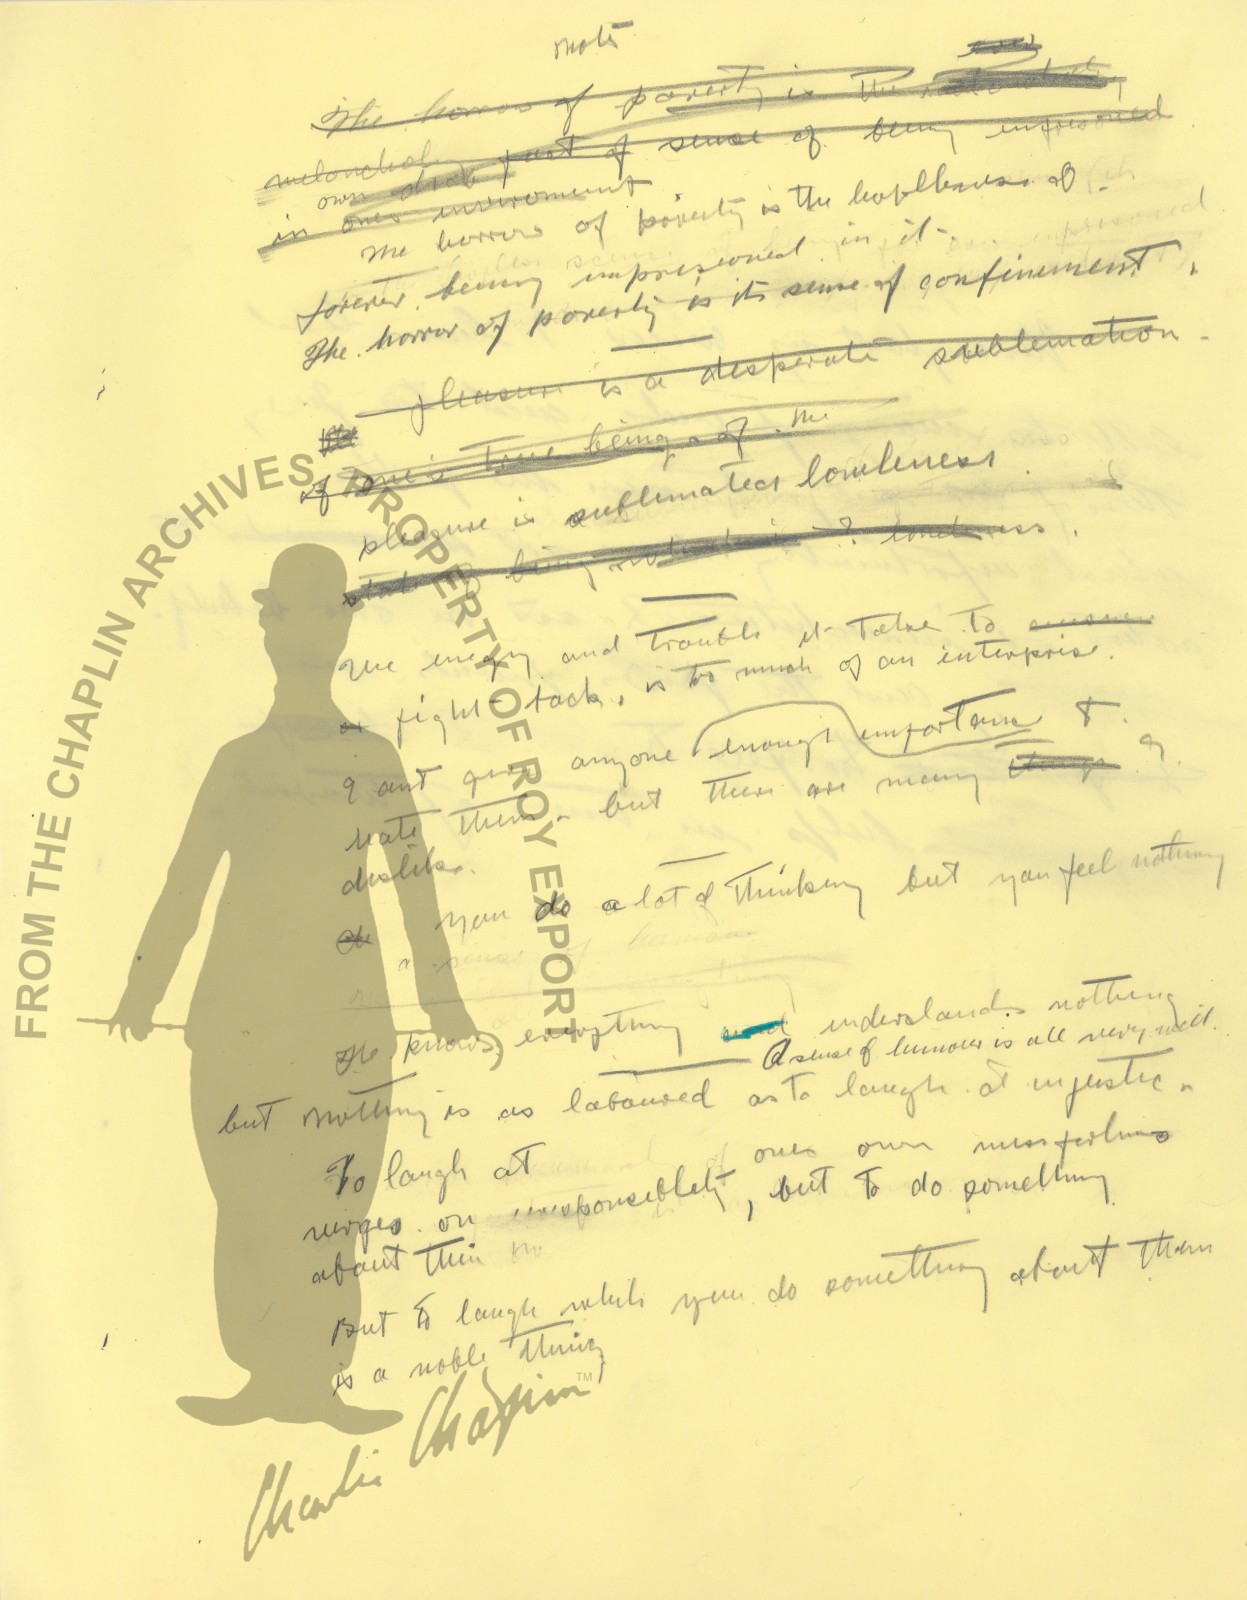 note
The horror of poverty is the
melancholy fact of sense of being impresoned
own
in ones invironment
The horror of poverty is the hoplbness of
forever being impresoned in it.
The horror of poverty is its sense of confinement.
pleasure is a desperate sublemation
of one's true being of the
pleasure is sublemated lonleness.
state of being
The enegy and trouble it take to
fight back, is too much of an enterprise.
I cant give anyone enough importance to
hate them - but there are many I
dislike.
you do a lot of thinking but you feel nothing
a sense of humour
He knows everything and understands nothing
A sense of humour is all very well.
but nothing is as laboured as to laugh at injustic.
To laugh at ones own missfortunes
verges on irresponsiblety, but to do something
about thim
But to laugh while you do something about them
is a noble thing
FROM THE CHAPLIN ARCHIVES, PROPERTY OF ROY EXPORT
Charlie Chaplin™